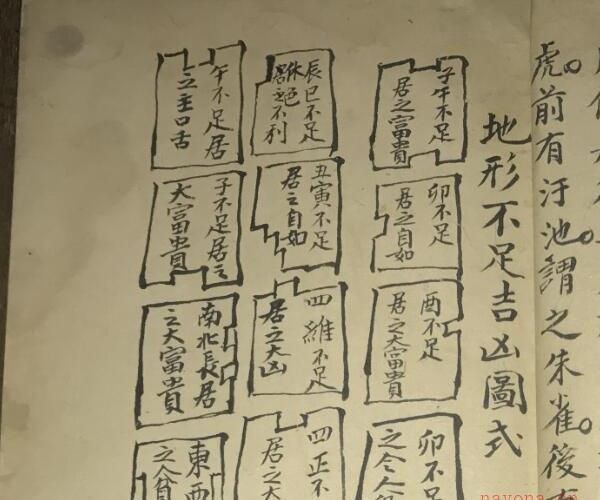 虎。前有汙池。謂之朱雀。後
地形不足吉凶圖式
子午不足
居之富貴
卯不足
居之自如
酉不足
居之大富貴
卯不足
之令人
辰巳不足
丑寅不足
居之自如
四維不足
居之大凶
四正不
居之大
午不足居
之主口舌
子不足居之
大富貴
南北長居
之大富貴
東西
之貧